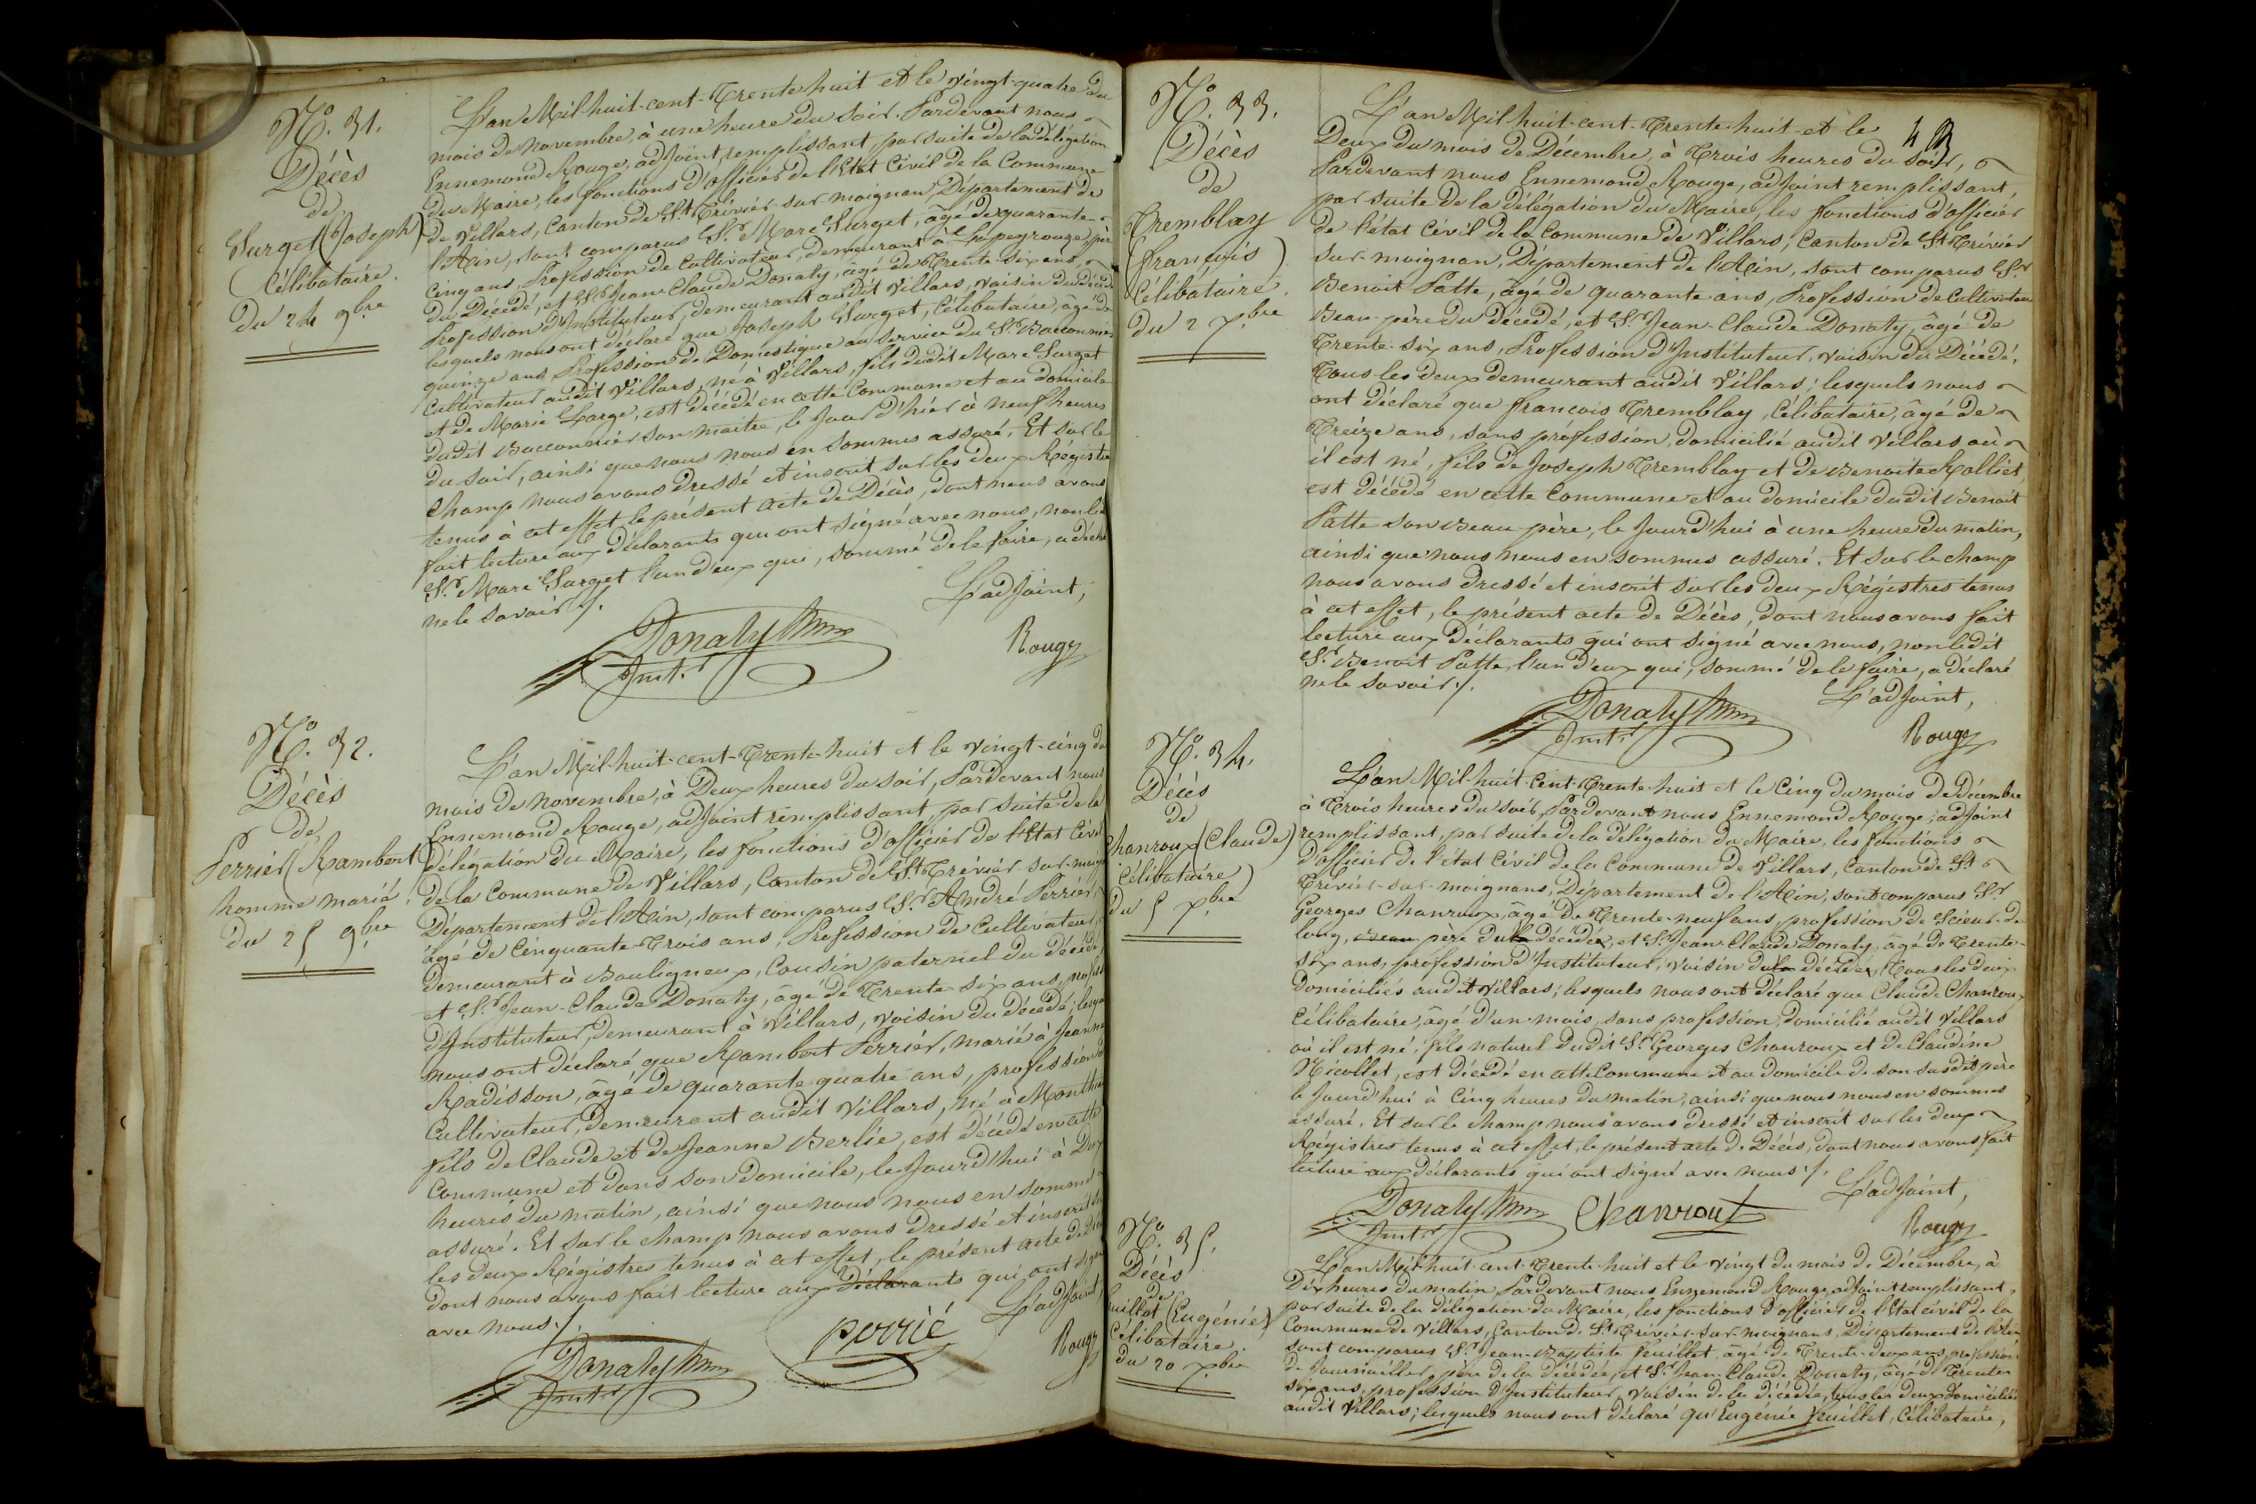 N.º 31.
Décès
de
Surget (Joseph)
Célibataire.
du 24 9.bre
L'an Mil-huit-cent-Trente-huit et le vingt-quatre du
mois de Novembre, à une heure du soir. Pardevant nous
Ennemond Rouge, adjoint, remplissant, par suite de la délégation
du Maire, les fonctions d'officier de l'Etat Civil de la Commune
de Villars, Canton de St Trévier sur moignan, Département de
l'Ain, sont comparus Sr. Marc Surget, âgé de quarante-
cinq ans, Profession de Cultivateur, demeurant à père
du Décédé, et Sr Jean-Claude Donaty, âgé de Trente-six ans,
Profession d'Instituteur, demeurant audit Villars, voisin du décédé
lesquels nous ont déclaré que Joseph Surget, Célibataire, âgé de
quinze ans, Profession de Domestique au service du Sr.
Cultivateur audit Villars, né à Villars, fils dudit Marc Surget
et de Marie Large, est décédé en cette Commune et au domicile
dudit son maître, le Jour d'hier à neuf heures
du soir, ainsi que nous nous en sommes assuré. Et sur le
champ nous avons dressé et inscrit sur les deux Régistres
tenus à cet effet le présent acte de Décès, dont nous avons
fait lecture aux déclarants qui ont signé avec nous, non le
Sr. Marc Surget l'un d'eux qui, sommé de le faire, a déclaré
ne le savoir ./.
L'adjoint,
Donaty
Inst.r
Rouge
N.º 32.
Décès
de
Perrier (Rambert
homme marié.
du 25 9.bre
L'an Mil-huit-cent-Trente-huit et le vingt-cinq du
mois de Novembre, à Deux heures du soir, Pardevant nous
Ennemond Rouge, adjoint remplissant, par suite de la
délégation du Maire, les fonctions d'officier de l'Etat Civil
de la Commune de Villars, Canton de St Trévier sur-moig
Département de l'Ain, sont comparus Sr. André Perrier,
âgé de Cinquante-Trois ans, Profession de Cultivateur,
demeurant à Bouligneux, Cousin paternel du décédé
et Sr. Jean-Claude Donaty, âgé de Trente six ans, profes
d'Instituteur, demeurant à Villars, voisin du décédé; lesque
nous ont déclaré que Rambert Perrier, marié à Jeanne
Radisson, âgé de quarante-quatre ans, profession de
Cultivateur, demeurant audit Villars, né à Monthie
fils de Claude et de Jeanne Berlie, est décédé en cette
Commune et dans son domicile, le Jourd'hui à Deux
heures du matin, ainsi que nous nous en sommes
assuré. Et sur le champ nous avons dressé et inscrit sur
les deux Régistres tenus à cet effet, le présent acte de Déc
dont nous avons fait lecture aux déclarants qui ont signé
avec nous ./.
L'adjoint,
Donaty
Inst.r
perrié
Rouge
43
N.º 33.
Décès
de
Tremblay
(françois)
Célibataire.
du 2 X.bre
L'an Mil-huit-cent-Trente-huit-et le
Deux du mois de Décembre, à Trois heures du soir,
Pardevant nous Ennemond Rouge, adjoint remplissant,
par suite de la délégation du Maire, les fonctions d'officier
de l'état Civil de la Commune de Villars, Canton de St Trévier
sur-moignan, Département de l'Ain, sont comparus Sr
Benoit Patte, âgé de quarante ans, Profession de Cultivateur
Beau-père du décédé, et Sr. Jean-Claude Donaty, âgé de
Trente-six ans, Profession d'Instituteur, voisin du Décédé.
Tous les deux demeurant audit Villars; lesquels nous
ont déclaré que françois Tremblay, Célibataire, âgé de
Treize ans, sans profession, domicilié audit Villars où
il est né, fils de Joseph Tremblay et de Benoite Rollier,
est décédé en cette Commune et au domicile dudit Benoit
Patte son Beau-père, le Jourd'hui à une heure du matin,
ainsi que nous nous en sommes assuré. Et sur le champ
nous avons dressé et inscrit sur les deux Régistres tenus
à cet effet, le présent acte de Décès, dont nous avons fait
lecture aux déclarants qui ont signé avec nous, non ledit
Sr. Benoit Patte, l'un d'eux qui, sommé de le faire, a déclaré
ne le savoir ./.
L'adjoint,
Donaty
Inst.r
Rouge
N.º 34.
Décès
de
Chanroux (Claude)
Célibataire)
du 5 X.bre
L'an Mil-huit-Cent-Trente-huit et le Cinq du mois de Décembre
à Trois heures du soir, Pardevant nous Ennemond Rouge, adjoint
remplissant, par suite de la délégation du Maire, les fonctions
d'officier de l'état Civil de la Commune de Villars, Canton de St
Trévier-sur-moignans, Département de l'Ain, sont comparus Sr
Georges Chanroux, âgé de Trente-neuf ans, profession de Scieur-de
long, père du décédé, et Sr. Jean-Claude Donaty, âgé de Trente-
six ans, profession d'Instituteur, voisin du décédé, Tous les deux
domiciliés audit Villars; lesquels nous ont déclaré que Claude Chanroux
Célibataire, âgé d'un mois, sans profession, domicilié audit Villars
où il est né, fils naturel dudit Sr. Georges Chanroux et de Claudine
Nicollet, est décédé en cette Commune et au domicile de son susdit père
le Jourd'hui à Cinq heures du matin, ainsi que nous nous en sommes
assuré. Et sur le champ nous avons dressé et inscrit sur les deux
Régistres tenus à cet effet, le présent acte de Décès, dont nous avons fait
lecture aux déclarants qui ont signé avec nous ./.
L'adjoint,
Donaty
Inst.r
Chanroux
Rouge
N.º 35.
Décès
de
feuillet (Eugénie)
Célibataire.
du 20 X.bre
L'an Mil-huit-cent-Trente-huit et le vingt du mois de Décembre, à
Dix heures du matin, Pardevant nous Ennemond Rouge, adjoint remplissant,
par suite de la délégation du Maire, les fonctions d'officier de l'Etat civil de la
Commune de Villars, Canton de St Trévier-sur-moignans, Département de l'Ain
sont comparus Sr. Jean-Baptiste feuillet, âgé de Trente-deux ans, profession
de Journaillier, père de la décédée, et Sr. Jean-Claude Donaty, âgé de Trente
six ans, profession d'Instituteur, voisin de la décédée, tous les deux domiciliés
audit Villars; lesquels nous ont déclaré qu'Eugénie feuillet, Célibataire,